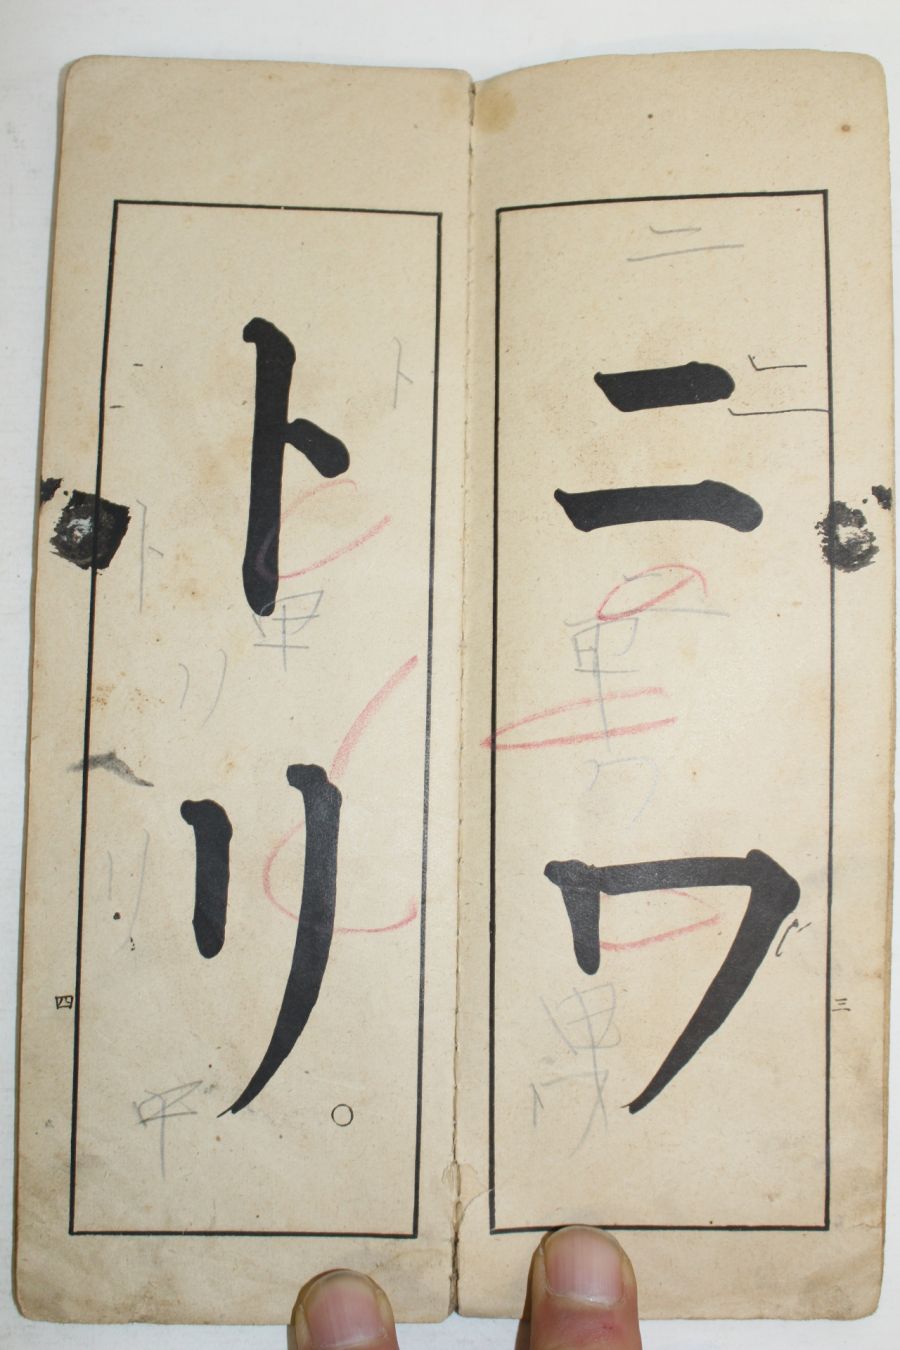 ニワ
三
トリ。
四